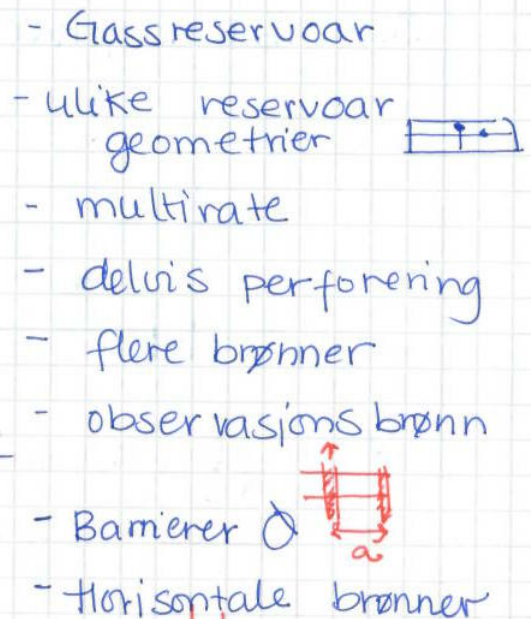 - Gassreservoar
- ulike reservoar
geometrier
- multirate
- delvis perforering
- flere brønner
- observasjonsbrønn
a
- Barrierer
- Horisontale brønner